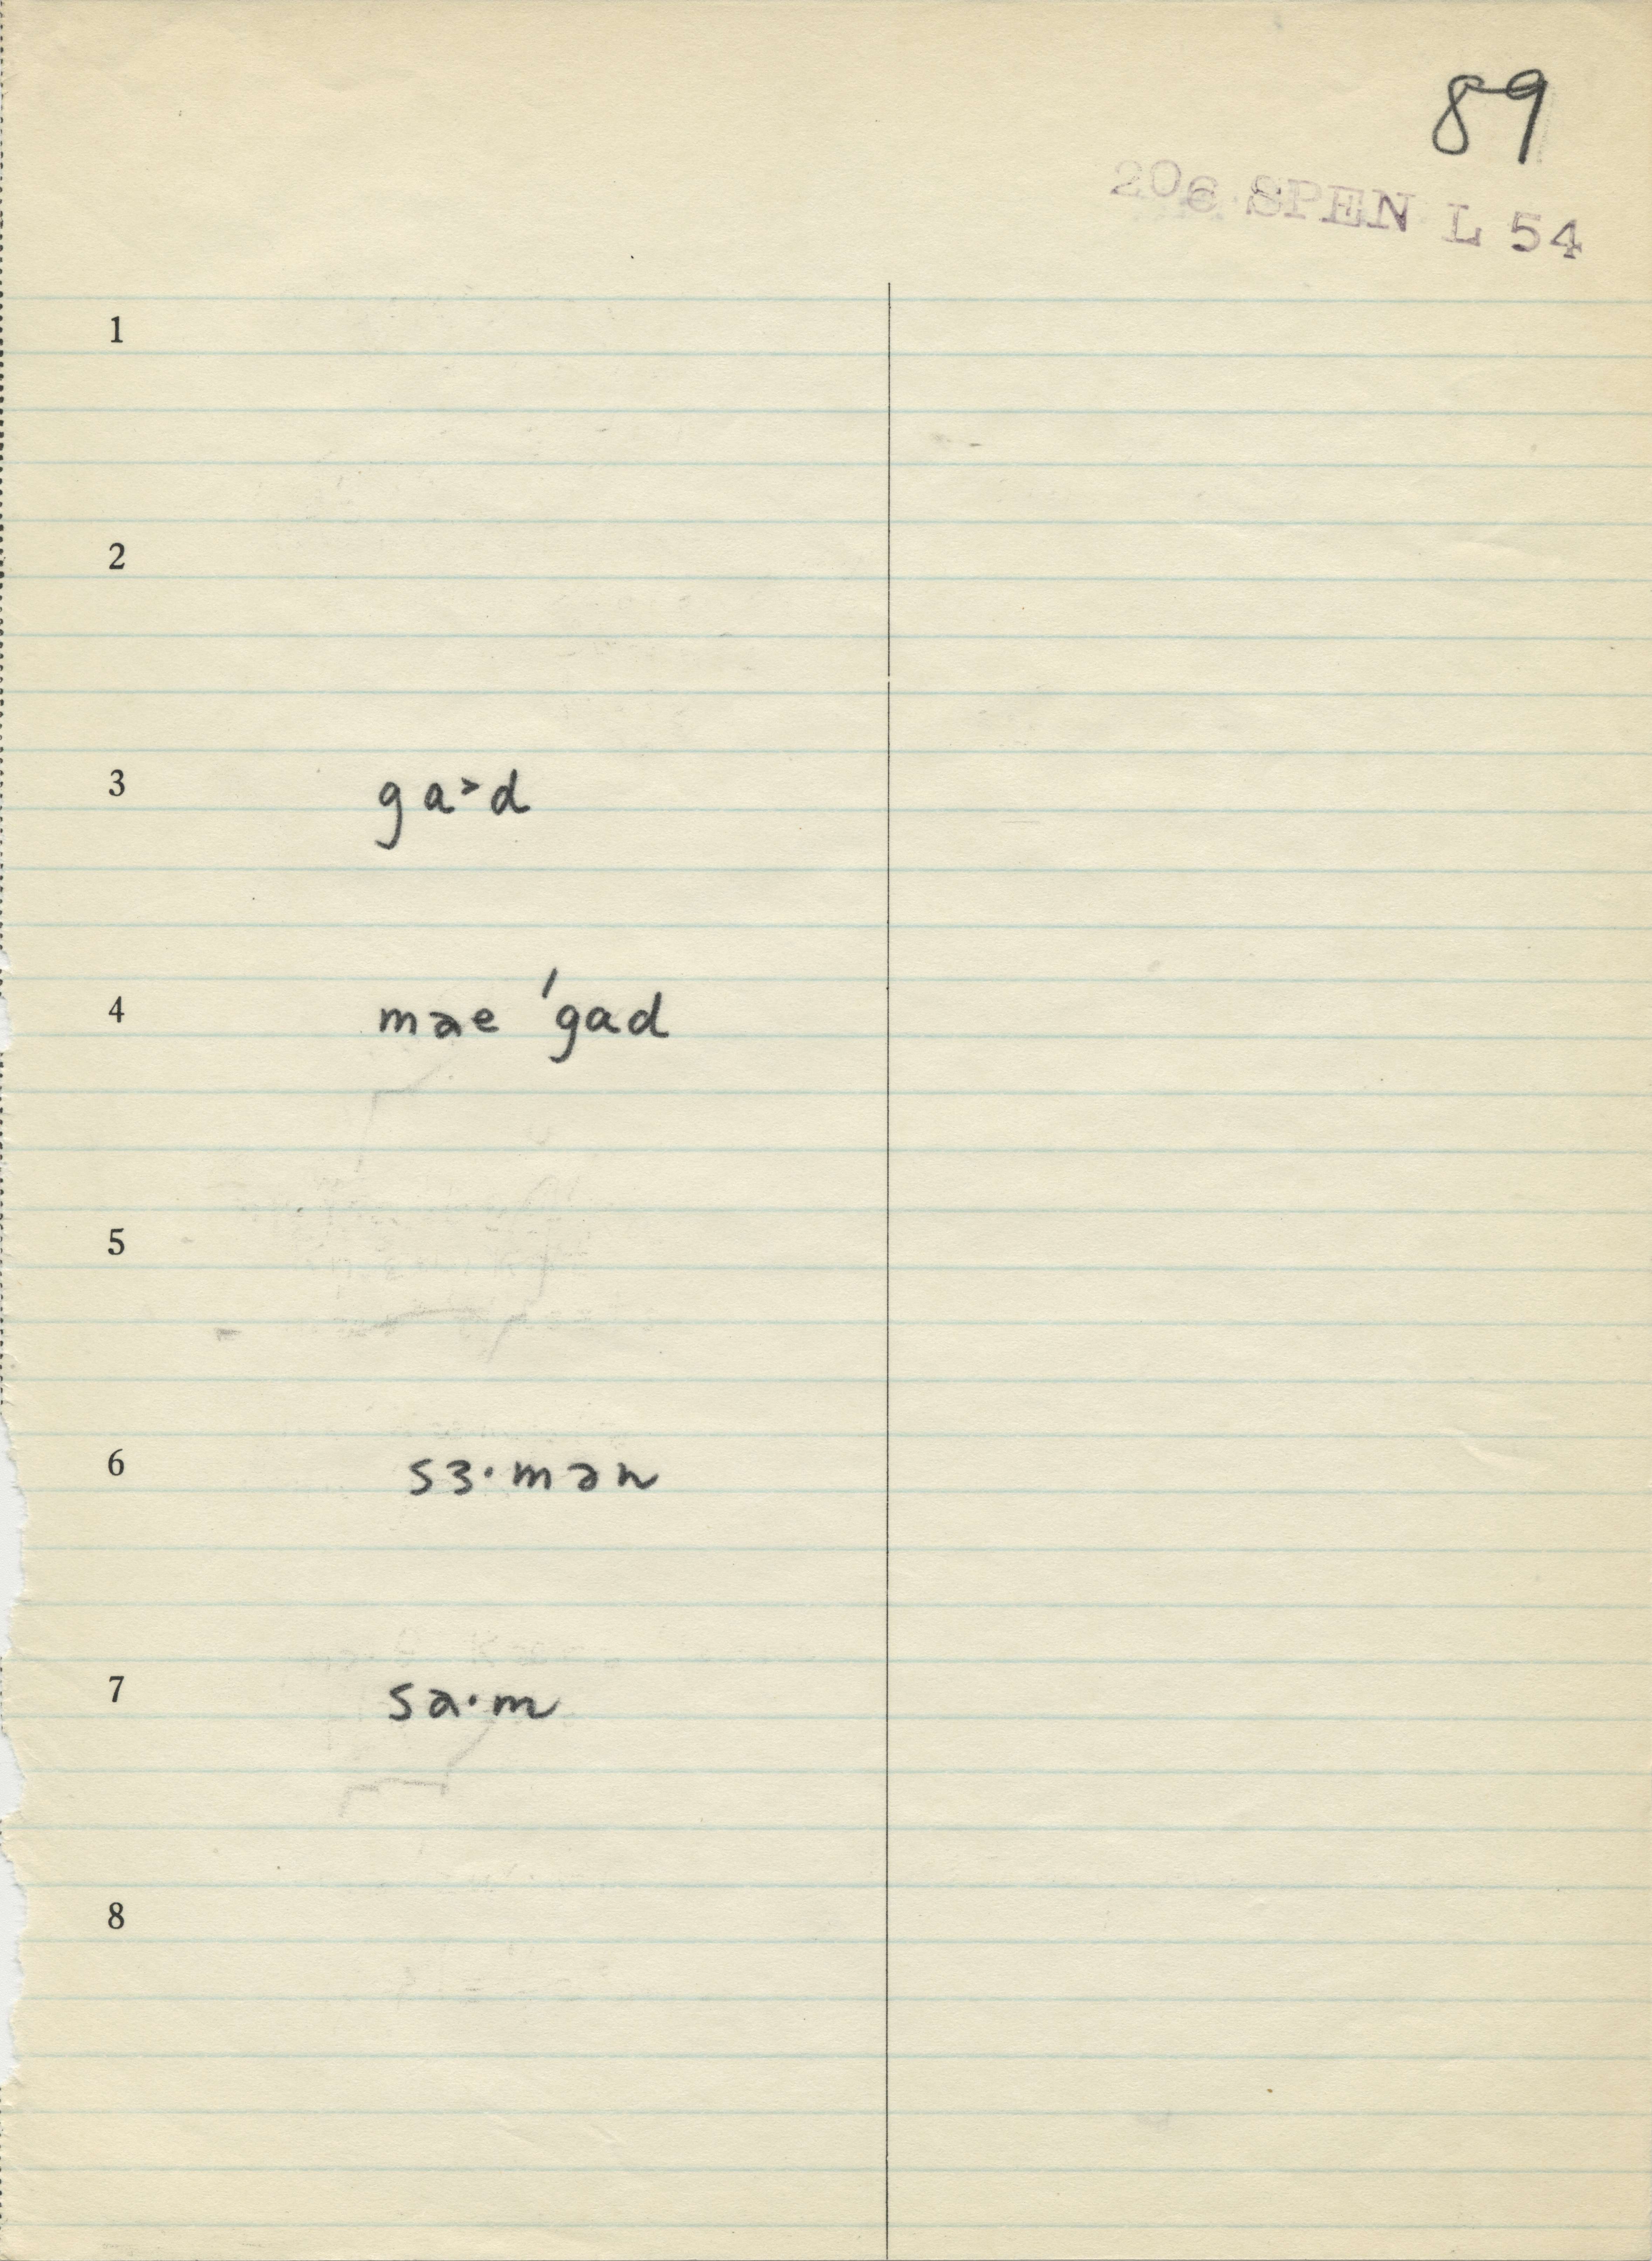 89
206 SPEN L 54
1
2
3 ga˃d
4 mae ˈgad
5
6 sɜ·mən
7 sa·m
8